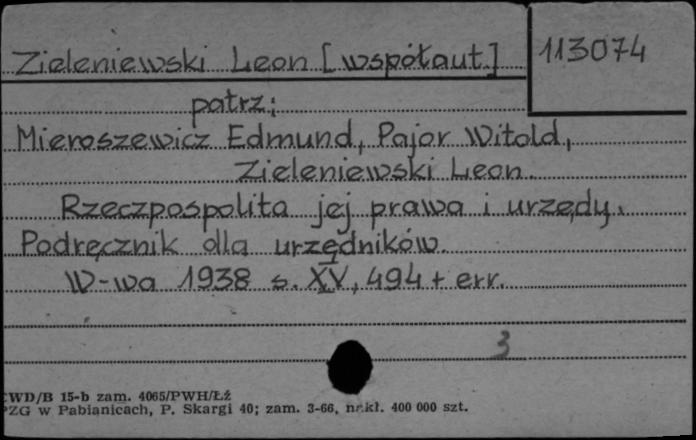 Zieleniewski Leon [współaut.]
113074
patrz:
Mieroszewicz Edmund, Pajor Witold,
Zieleniewski Leon.
Rzeczpospolita jej prawa i urzędy.
Podręcznik dla urzędników.
W-wa 1938 s. XV, 494 + err.
3
CWD/B 15-b zam. 4065/PWH/Łź
PZG w Pabianicach, P. Skargi 40; zam. 3-66, nakł. 400 000 szt.